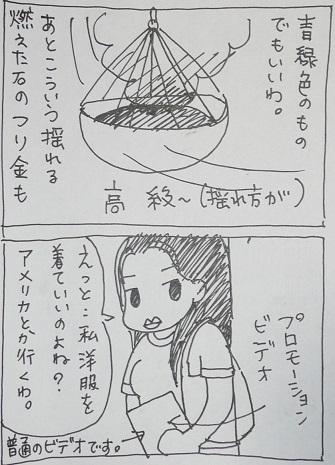 青緑色のもの
でもいいわ。
あとこういう揺れる
燃えた石のつり金も
高級〜(揺れ方が)
プロモーション
ビデオ
えっと…私洋服を
着ていいのよね?
アメリカとか行くわ。
普通のビデオです。→